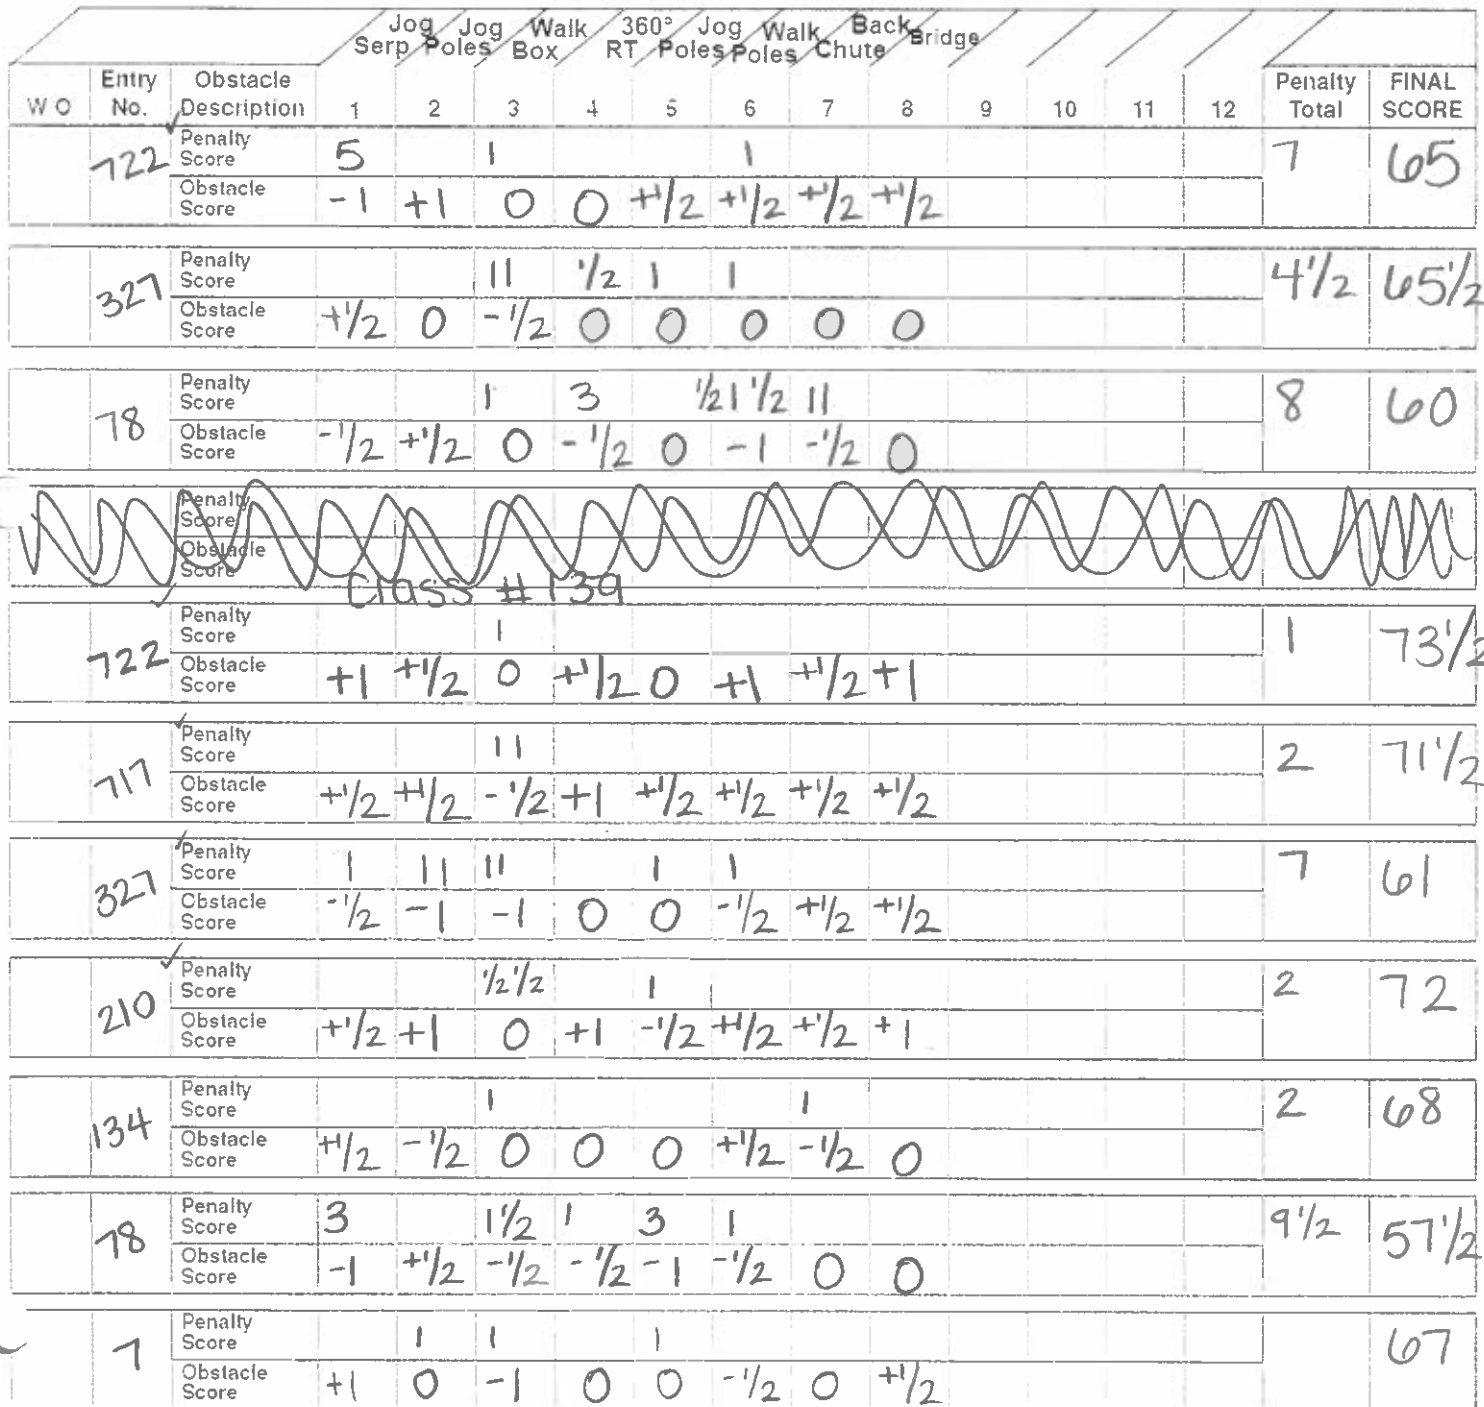 Jog Serp Jog Poles Walk Box 360° RT Jog Poles Walk Poles Back Chute Bridge
W O Entry No. Obstacle Description 1 2 3 4 5 6 7 8 9 10 11 12 Penalty Total FINAL SCORE
722 Penalty Score 5 1 1 7 65
Obstacle Score -1 +1 0 0 +1/2 +1/2 +1/2 +1/2
327 Penalty Score 11 1/2 1 1 4 1/2 65 1/2
Obstacle Score +1/2 0 -1/2 0 0 0 0 0
78 Penalty Score 1 3 1/2 1 1/2 11 8 60
Obstacle Score -1/2 +1/2 0 -1/2 0 -1 -1/2 0
Penalty Score
Obstacle Score
Class # 139
722 Penalty Score 1 1 73 1/2
Obstacle Score +1 +1/2 0 +1/2 0 +1 +1/2 +1
717 Penalty Score 11 2 71 1/2
Obstacle Score +1/2 +1/2 -1/2 +1 +1/2 +1/2 +1/2 +1/2
327 Penalty Score 1 11 11 1 1 7 61
Obstacle Score -1/2 -1 -1 0 0 -1/2 +1/2 +1/2
210 Penalty Score 1/2 1/2 1 2 72
Obstacle Score +1/2 +1 0 +1 -1/2 +1/2 +1/2 +1
134 Penalty Score 1 1 2 68
Obstacle Score +1/2 -1/2 0 0 0 +1/2 -1/2 0
78 Penalty Score 3 1 1/2 1 3 1 9 1/2 57 1/2
Obstacle Score -1 +1/2 -1/2 -1/2 -1 -1/2 0 0
7 Penalty Score 1 1 1 67
Obstacle Score +1 0 -1 0 0 -1/2 0 +1/2